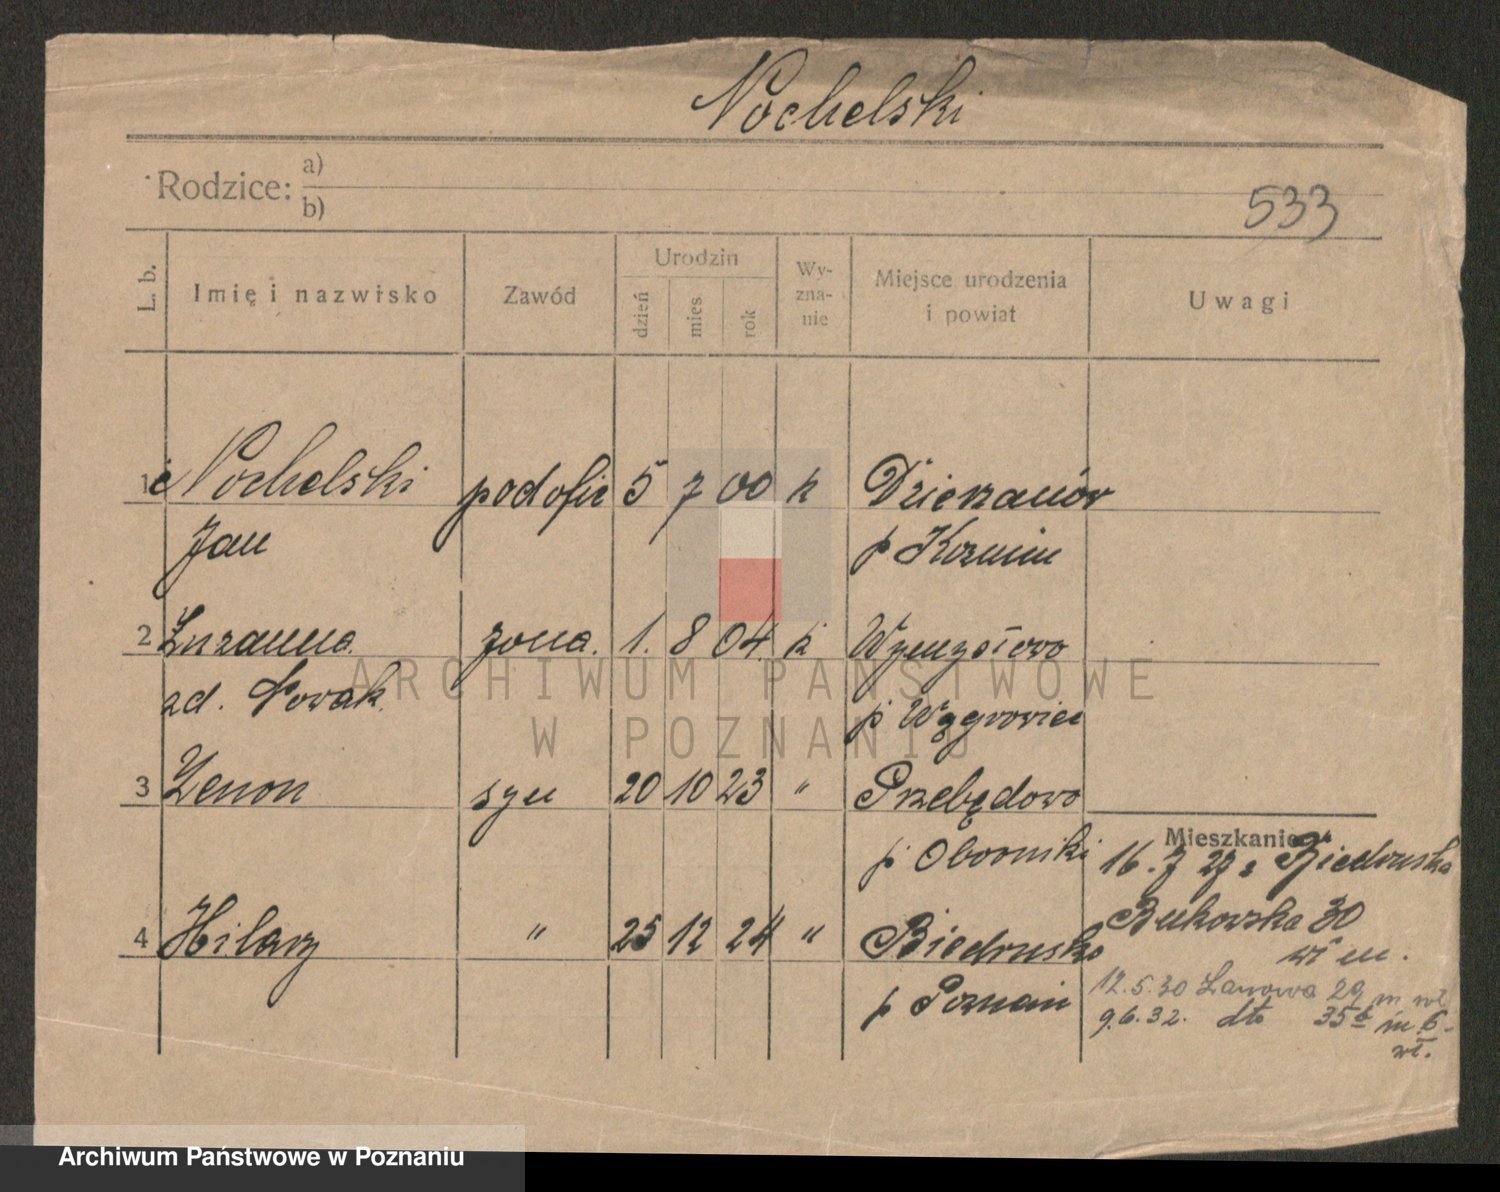 Nochelski
Rodzice: a)
b)
533
L. b. Imię i nazwisko Zawód Urodzin dzień mies rok Wy-zna-nie Miejsce urodzenia i powiat Uwagi
1 Nochelski podofic 5 7 00 k Dzierzanów
Jan p Kozmin
2 Zuzanna żona. 1. 8 04. k
zd. Nowak. p Wągrowiec
3 Zenon syn 20 10 23 " Przebędowo
Mieszkanie
p Oborniki 16. 7 27 z Biedruska
4 Hilary " 25 12 24 " Biedrusko Bukowska 30
wł m.
p Poznań 12.5.30 Łanowa 29 m wł
9.6.32. dto 35 m 6-
wł.
ARCHIWUM PAŃSTWOWE
W POZNANIU
Archiwum Państwowe w Poznaniu